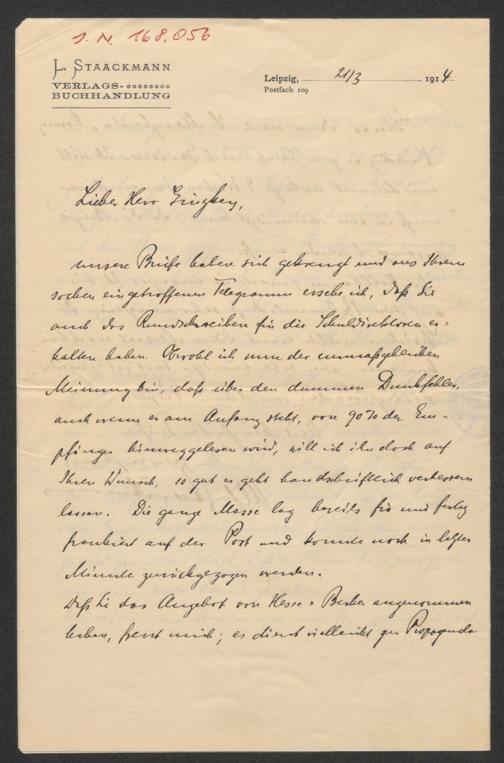 I. N. 168.056
L. STAACKMANN
VERLAGS-
BUCHHANDLUNG
Leipzig, 21/3 1914.
Postfach 109
Lieber Herr Ginzkey,
unsere Briefe haben sich gekreuzt und aus Ihrem
soeben eingetroffenen Telegramm ersehe ich, daß Sie
auch das Rundschreiben für die er-
halten haben. Obwohl ich nun der unmaßgeblichen
Meinung bin, daß über den dummen Druckfehler,
auch wenn er am Anfang steht, von 90% der Em-
pfänger hinweggelesen wird, will ich ihn doch auf
Ihren Wunsch, so gut es geht handschriftlich verbessern
lassen. Die ganze Masse lag bereits fix und fertig
frankiert auf der Post und konnte noch in letzter
Minute zurückgezogen werden.
Daß Sie das Angebot von Hesse & Becker angenommen
haben, freut mich; es dient vielleicht zur Propaganda